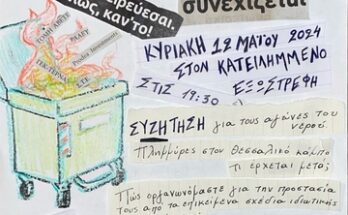 συνεχίζεται
ιρεύεσαι.
πως, καν'το!
ΚΥΡΙΑΚΗ 12 ΜΑΪΟΥ 2024
ΣΤΟΝ ΚΑΤΕΙΛΗΜΜΕΝΟ
ΣΤΙΣ 19:30 ΕΞΩΣΤΡΕΦΗ
ΣΥΖΗΤΗΣΗ για τους αγώνες του
νερού.
Πλημμύρες στον Θεσσαλικό κάμπο
τι έρχεται μετά;
Πώς οργανωνόμαστε για την προστασία
τους από τα επικείμενα σχέδια ιδιωτικής